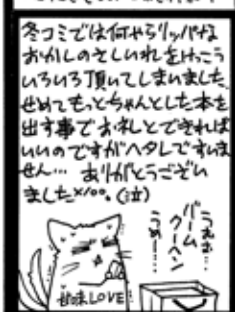 冬コミでは何やらリッパな
おかしのさしいれをけっこう
いろいろ頂いてしまいました。
せめてもっとちゃんとした本を
出す事でお礼とできれば
いいのですがヘタレですいま
せん… ありがとうござい
ました××。(泣)
うえお…
バーム
クーヘン
うめー…
甘味LOVE